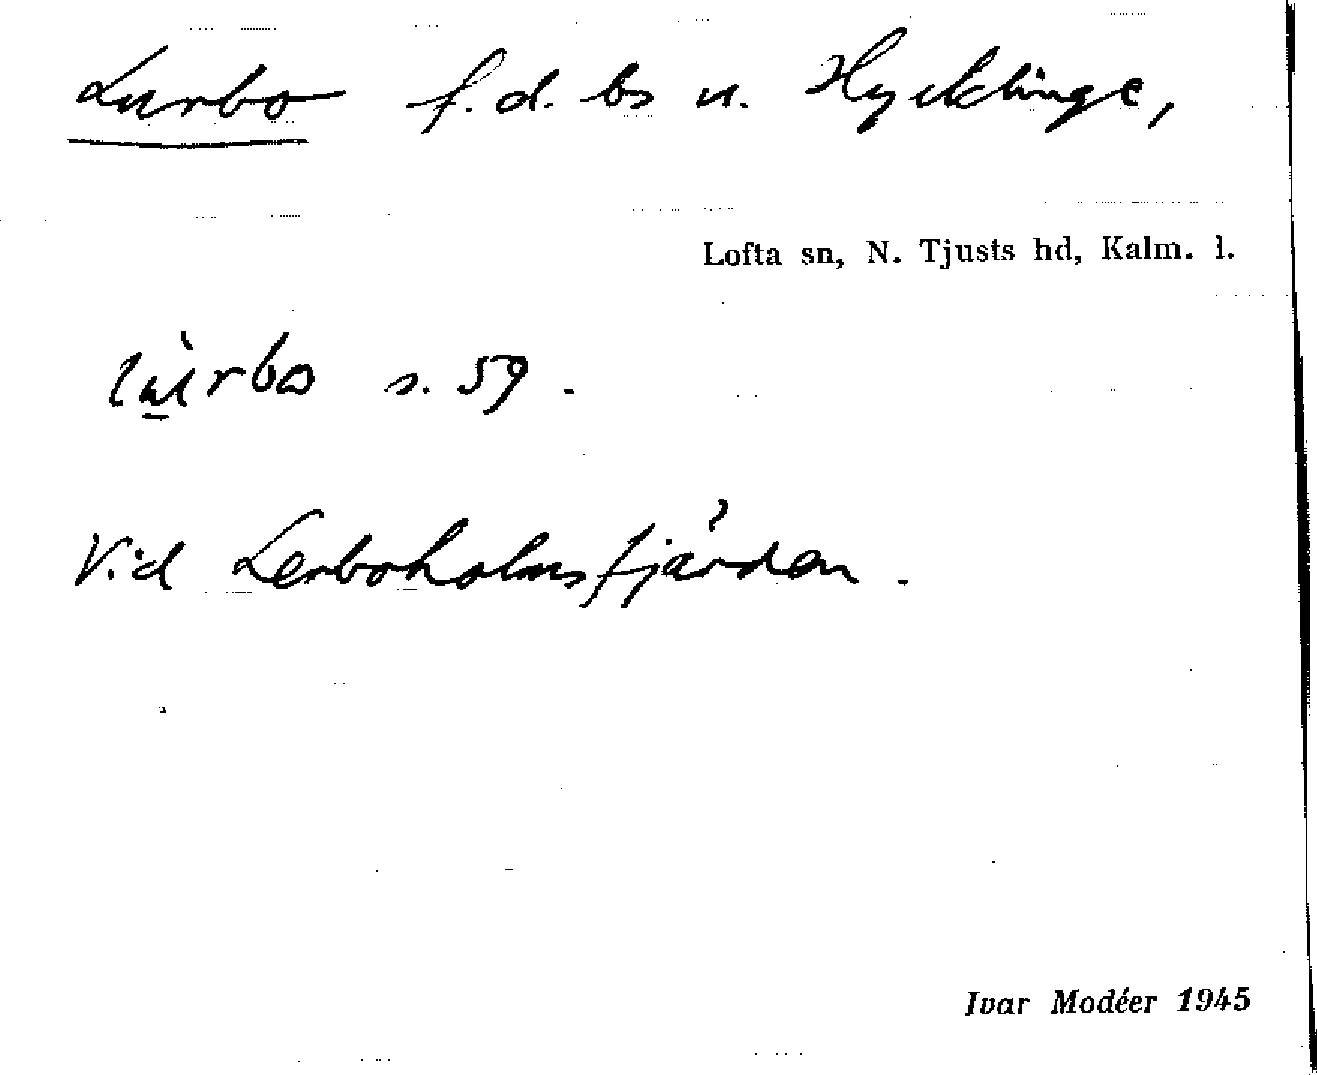 Lurbo f.d. bs u. Hycklinge,
Lofta sn, N. Tjusts hd, Kalm. l.
s. 59.
Vid Lerboholmsfjärden.
Ivar Modéer 1945